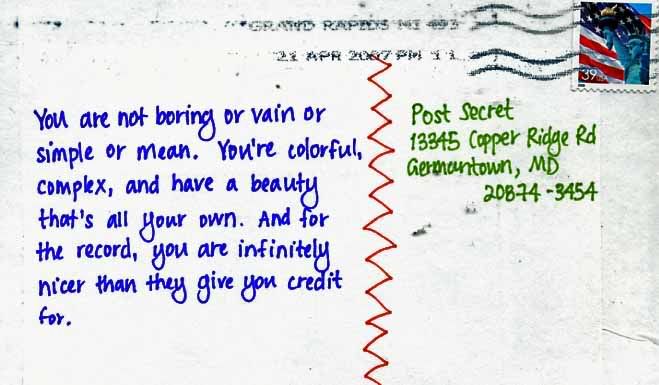 GRAND RAPIDS MI 493
21 APR 2007 PM 11
39
You are not boring or vain or
simple or mean. You're colorful,
complex, and have a beauty
that's all your own. And for
the record, you are infinitely
nicer than they give you credit
for.
Post Secret
13345 Copper Ridge Rd
Germantown, MD
20874-3454